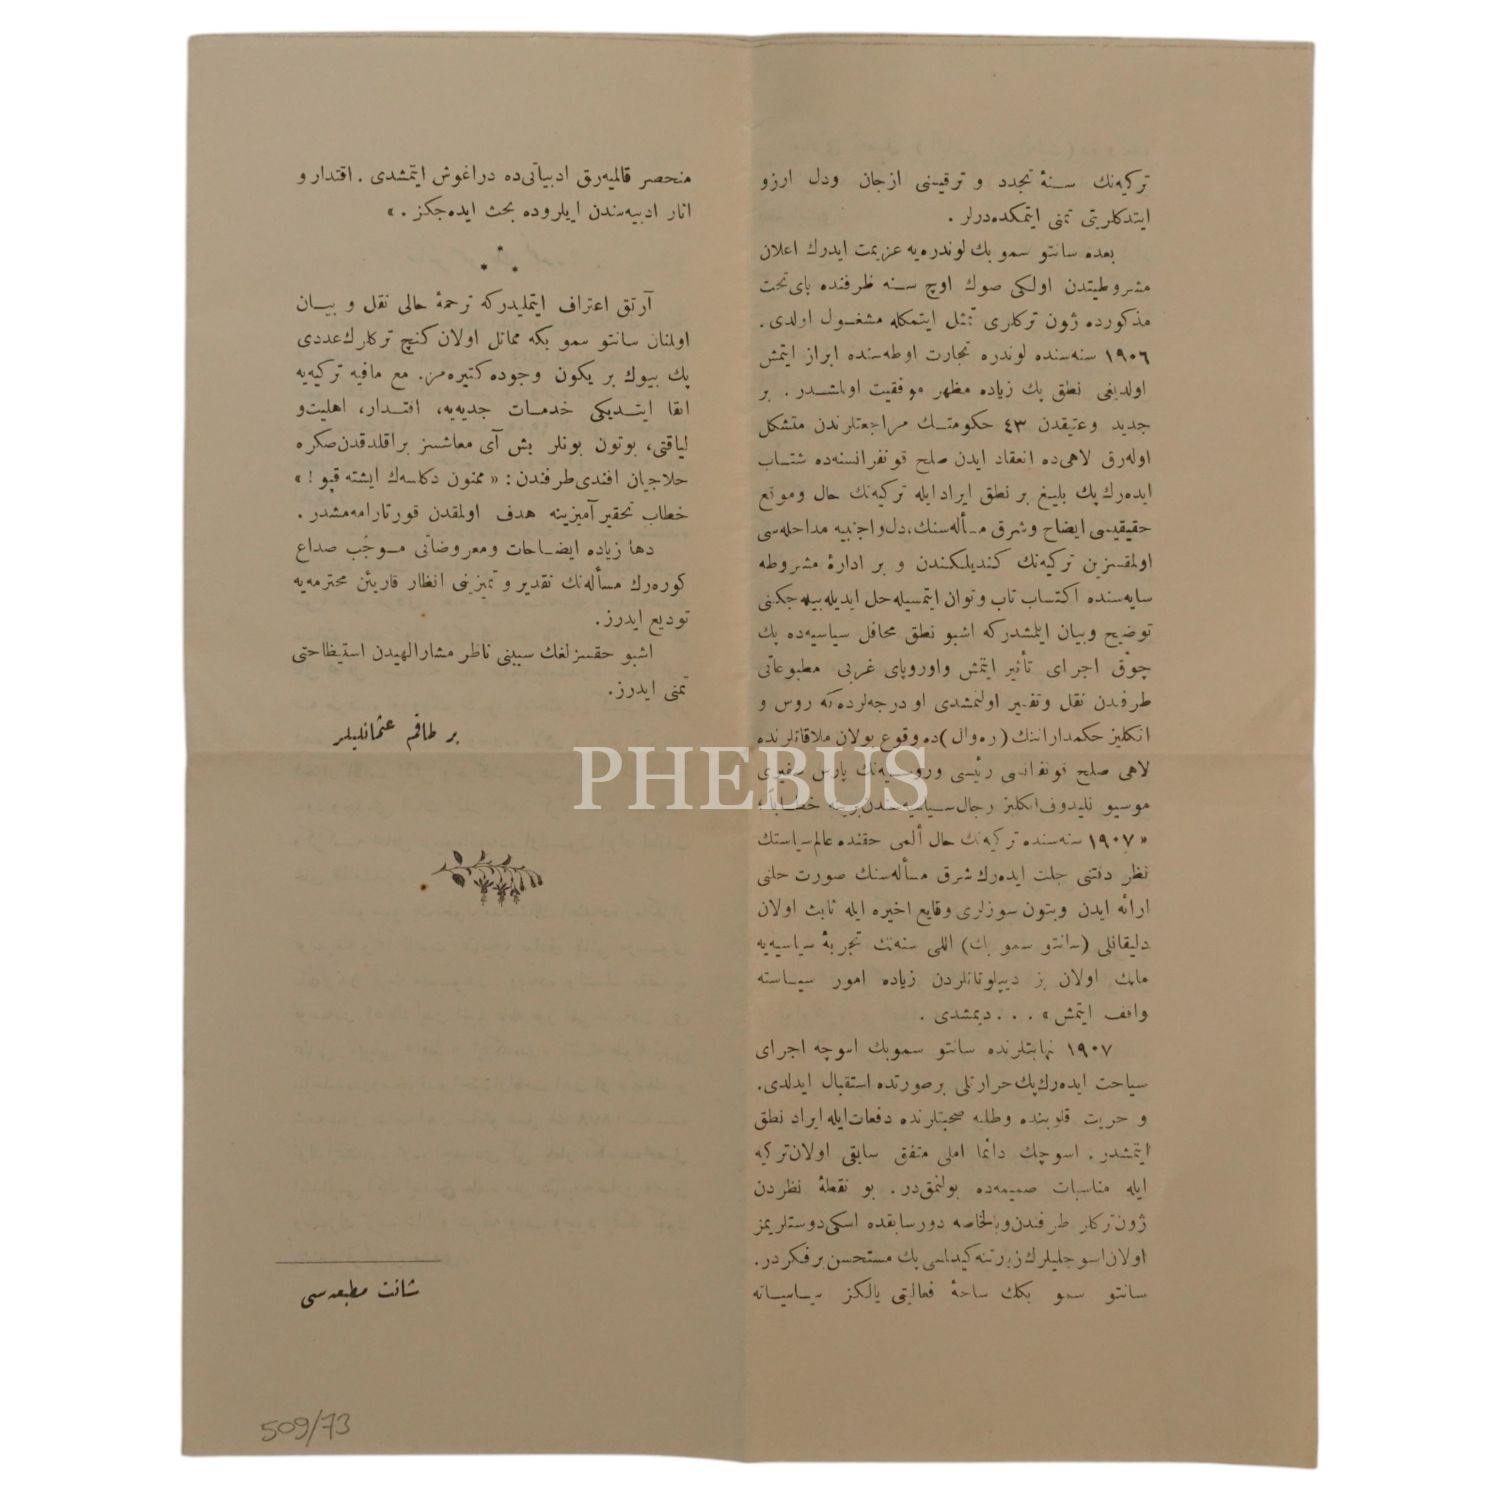 تركیه‌نك سنهٔ تجدد و ترقیسنی ازجان ودل ارزو
ایتدكلریتی تمنی ایتمكده‌درلر .
بعده سانتو سمو بك لوندره‌یه عزیمت ایدرك اعلان
مشروطیتدن اولكی صوك اوچ سنه ظرفنده پای تخت
مذكورده ژون تركلری تمثل ایتمكله مشغول اولدی .
١٩٠٦ سنه‌سنده لوندره تجارت اوطه‌سنده ابراز ایتمش
اولدیغی نطق پك زیاده مظهر موفقیت اولمشدر . بر
جدید وعتیقدن ٤٣ حكومتك مراجعتلرندن متشكل
اوله‌رق لاهی‌ده انعقاد ایدن صلح قونفرانسنه‌ده شتاب
ایده‌رك پك بلیغ بر نطق ایراد ایله تركیه‌نك حال وموقع
حقیقیسی ایضاح وشرق مسأله‌سنك، دل واجنبیه مداخله‌سی
اولمقسزین تركیه‌نك كندیلكندن و بر ادارهٔ مشروطه
سایه‌سنده اكتساب تاب وتوان ایتمسیله حل ایدیله‌بیله‌جكنی
توضیح وبیان ایلمشدركه اشبو نطق محافل سیاسیه‌ده پك
چوق اجرای تأثیر ایتمش واوروپای غربی مطبوعاتی
طرفدن نقل وتفسیر اولنمشدی او درجه‌لرده‌كه روس و
انكلیز حكمدارانك (ره‌وال) ده وقوع بولان ملاقاتلرنده
لاهی صلح قونفرانسی رئیسی وروسیه‌نك پارس سفیری
موسیو نلیدوف انكلیز رجال سیاسیه‌سندن برینه خطاباً :
« ١٩٠٧ سنه‌سنده تركیه‌نك حال ألمی حقنده عالم سیاستك
نظر دقتنی جلب ایده‌رك شرق مسأله‌سنك صورت حلنی
ارائه ایدن وبتون سوزلری وقایع اخیره ایله ثابت اولان
دلیقانلی (سانتو سمو بك) اللی سنه‌لك تجربهٔ سیاسیه‌یه
مالك اولان بز دیپلوماتلردن زیاده امور سیاسته
واقف ایتمش » . . . دیمشدی .
١٩٠٧ نهایتلرنده سانتو سموبك اسوچه اجرای
سیاحت ایده‌رك پك حرارتلی برصورتده استقبال ایدلدی .
و حریت قلوبنده وطلبه صحبتلرنده دفعات ایله ایراد نطق
ایتمشدر . اسوچك دائما املی متفق سابقی اولان تركیه
ایله مناسبات صمیمه‌ده بولنمق‌در . بو نقطهٔ نظردن
ژون‌تركلر طرفندن وبالخاصه دور سابقده اسكی دوستلریمز
اولان اسوجلیلرك زیارتنه كیدلسی پك مستحسن برفكردر .
سانتو سمو بكك ساحهٔ فعالیتی یالكز سیاسیاته
منحصر قالمیه‌رق ادبیاتی‌ده دراغوش ایتمشدی . اقتدار و
اثار ادبیه‌سندن ایلروده بحث ایده‌جكز . »
* * *
آرتق اعتراف ایتملیدركه ترجمهٔ حالی نقل و بیان
اولنان سانتو سمو بكه مماثل اولان كنج تركلرك عددی
پك بیوك بر یكون وجوده كتیره‌مز . مع مافیه تركیه‌یه
ایفا ایتدیكی خدمات جدیه‌یه، اقتدار، اهلیت و
لیاقتی، بوتون بونلر بش آی معاشسز براقلدقدن صكره
حلاجیان افندی طرفندن : « ممنون دكلسه‌ك ایشته قپو ! »
خطاب تحقیر آمیزینه هدف اولمقدن قورتارامه‌مشدر .
دها زیاده ایضاحات ومعروضاتی موجب صداع
كوره‌رك مسأله‌نك تقدیر و تمیزینی انظار قارئین محترمه‌یه
تودیع ایدرز .
اشبو حقسزلغك سببنی ناظر مشارالیهدن استیضاحتی
تمنی ایدرز .
بر طاقم عثمانلیلر
شانت مطبعه‌سی
509/73
PHEBUS